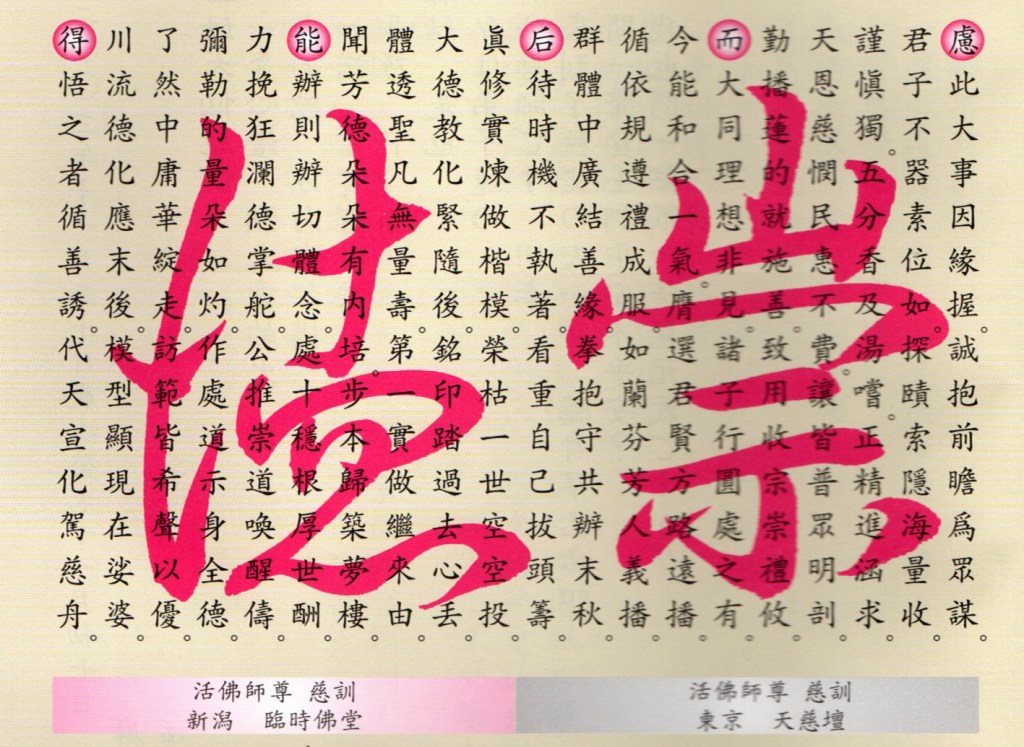 崇德
慮此大事因緣握。誠抱前瞻爲眾謀。
君子不器素位如。探賾索隱海量收。
謹愼獨。五分香及湯嚐。正精進涵求。
天恩慈憫民惠不費。讓皆普眾明剖。
勤播蓮的就施善。致用收宗崇禮攸。
而大同理想非見。諸子行圓處之有。
今能和合一氣。膺選君賢方路遠播。
循依規遵禮成服。如蘭芬芳人義播。
群體中廣結善緣。拳抱守共辦末秋。
后待時機不執著。看重自己拔頭籌。
眞修實煉做楷模。榮枯一世空空投。
大德教化緊隨後。銘印踏過去心丟。
體透聖凡無量壽。第一實做繼來由。
聞芳德朵朵有內培。步本歸築夢樓。
能辦則辦切體念。處十穩根厚世酬。
力挽狂瀾德掌舵。公推崇道喚醒儔。
彌勒的量朵如灼。作處道示身全德。
了然中庸華綻走。訪範皆希聲以優。
川流德化應末後。模型顯現在娑婆。
得悟之者循善誘。代天宣化駕慈舟。
活佛師尊 慈訓
東京 天慈壇
活佛師尊 慈訓
新潟 臨時佛堂